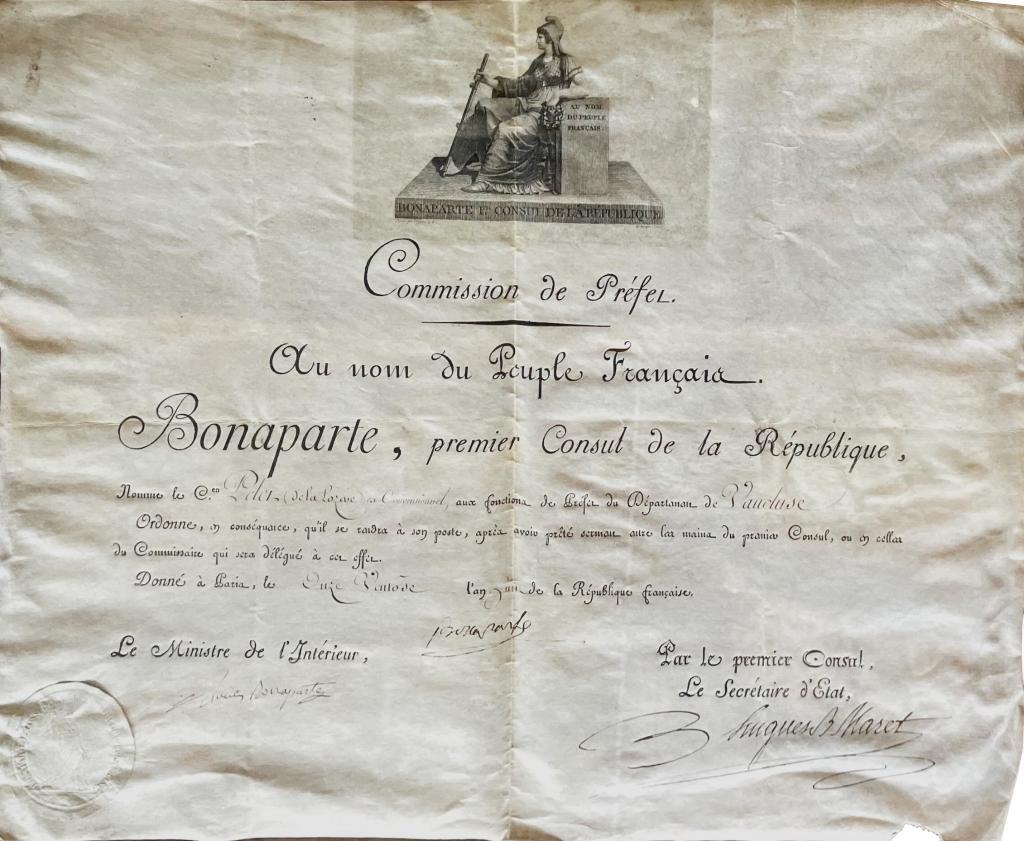 AU NOM
DU PEUPLE
FRANÇAIS.
BONAPARTE 1er CONSUL DE LA RÉPUBLIQUE
Commission de Préfet.
Au nom du Peuple Français.
Bonaparte, premier Consul de la République,
Nomme le C.en Pelet (de la Lozère) ex Conventionnel, aux fonctions de Préfet du Département de Vaucluse
Ordonne, en conséquence, qu'il se rendra à son poste, après avoir prêté serment entre les mains du premier Consul, ou en celles
du Commissaire qui sera délégué à cet effet.
Donné à Paris, le Onze Ventose l'an huit de la République française.
Bonaparte
Le Ministre de l'Intérieur,
Lucien Bonaparte
Par le premier Consul,
Le Secrétaire d'Etat,
Hugues B. Maret